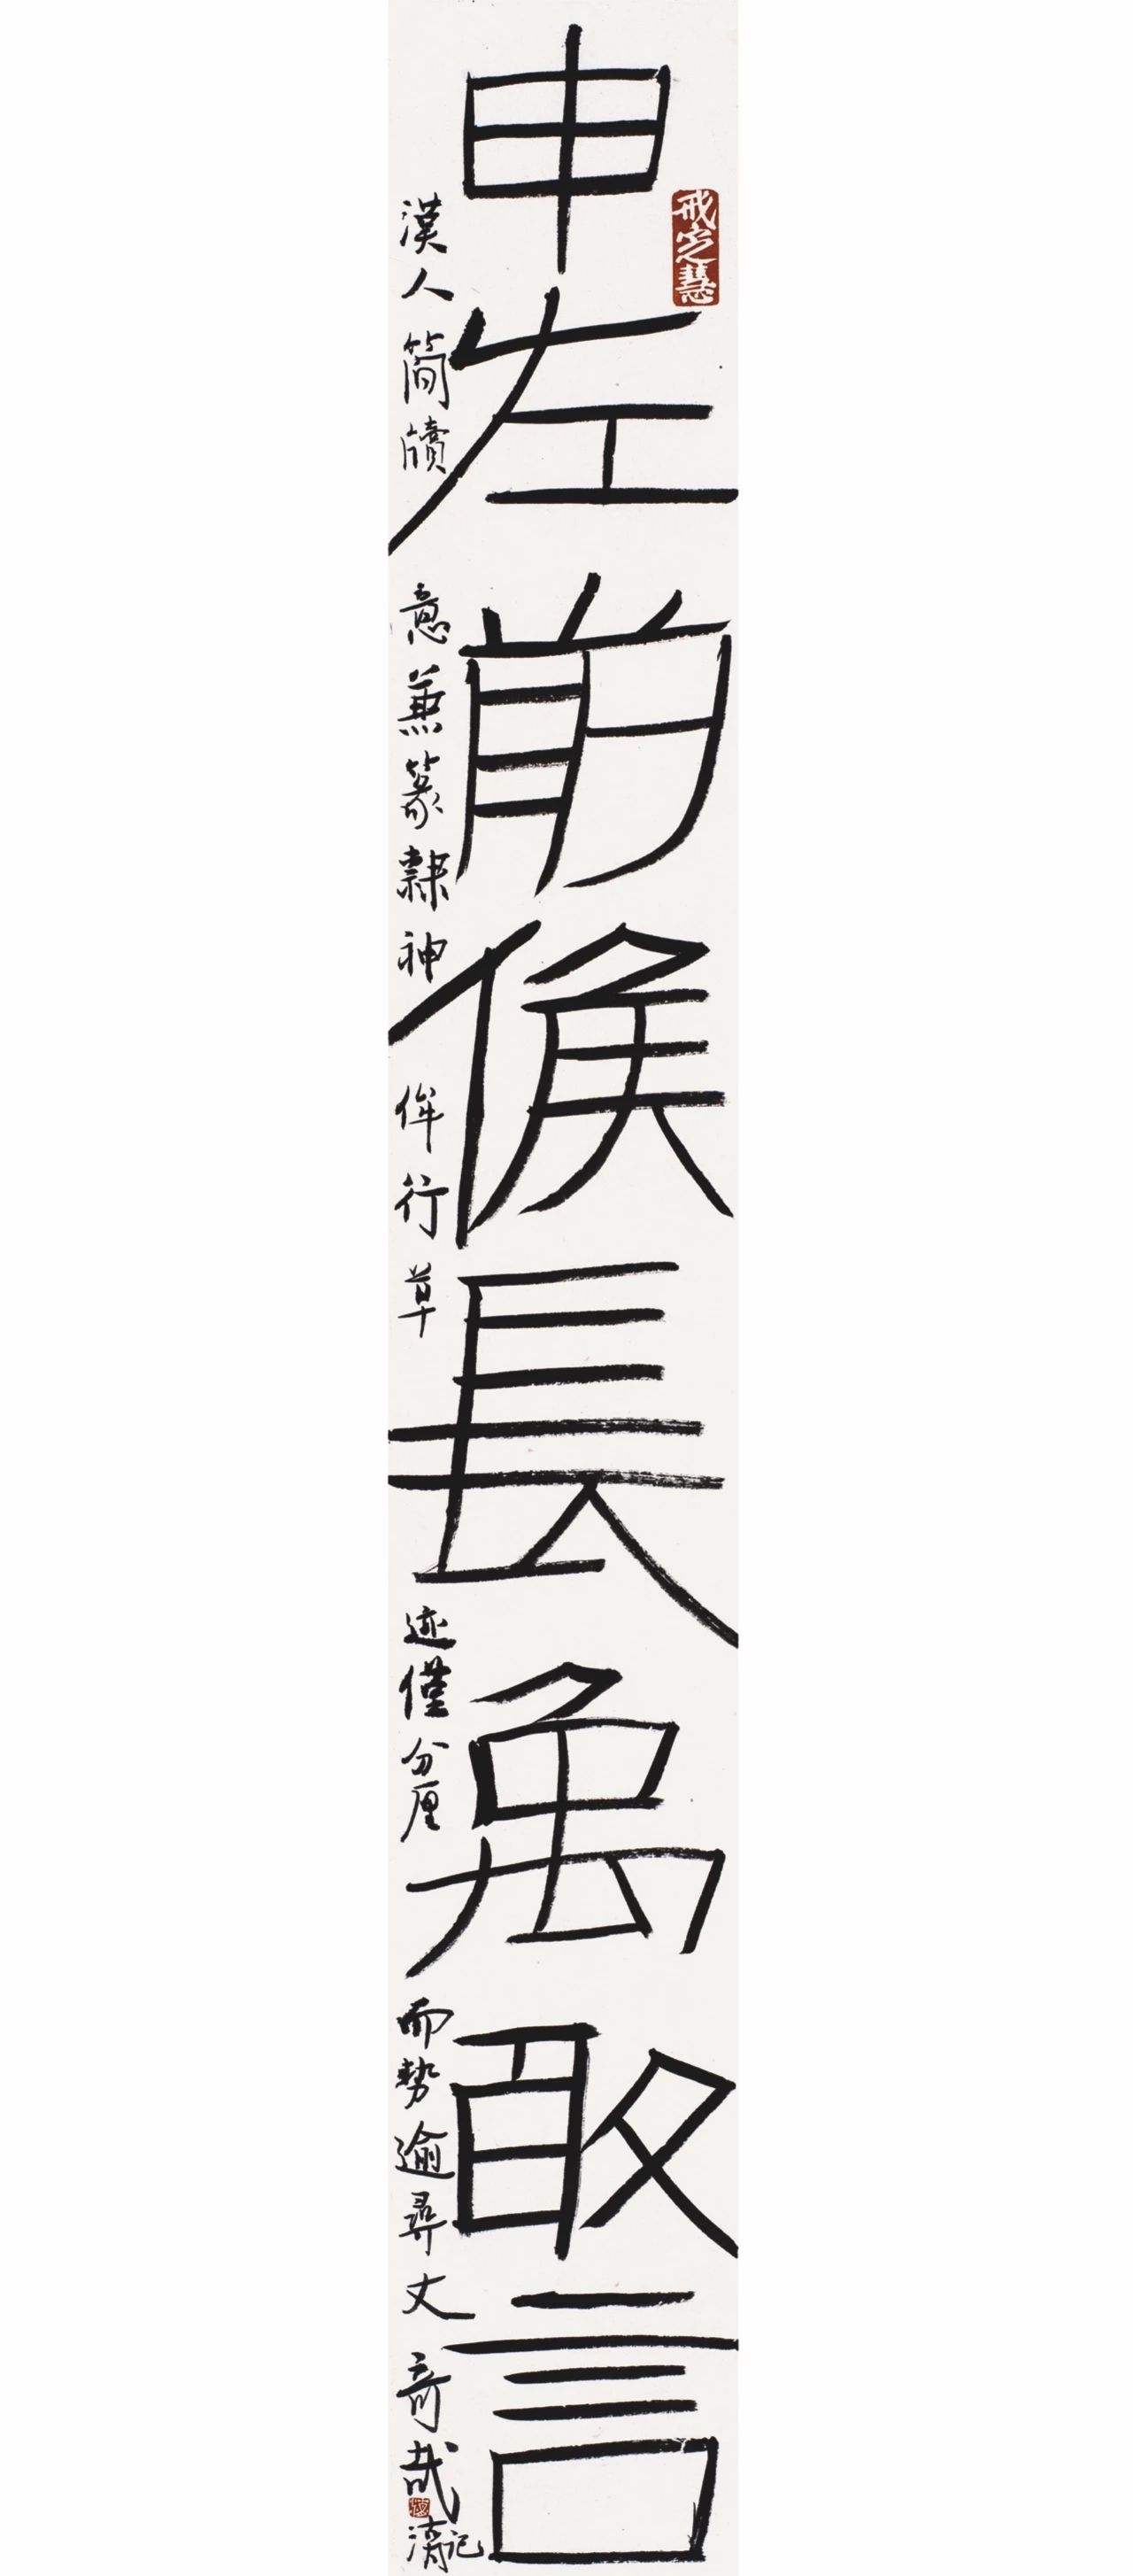 申左前候長禹敢言
漢人簡牘意兼篆隸神侔行草迹僅分厘而勢逾尋丈奇哉
記
戒定慧